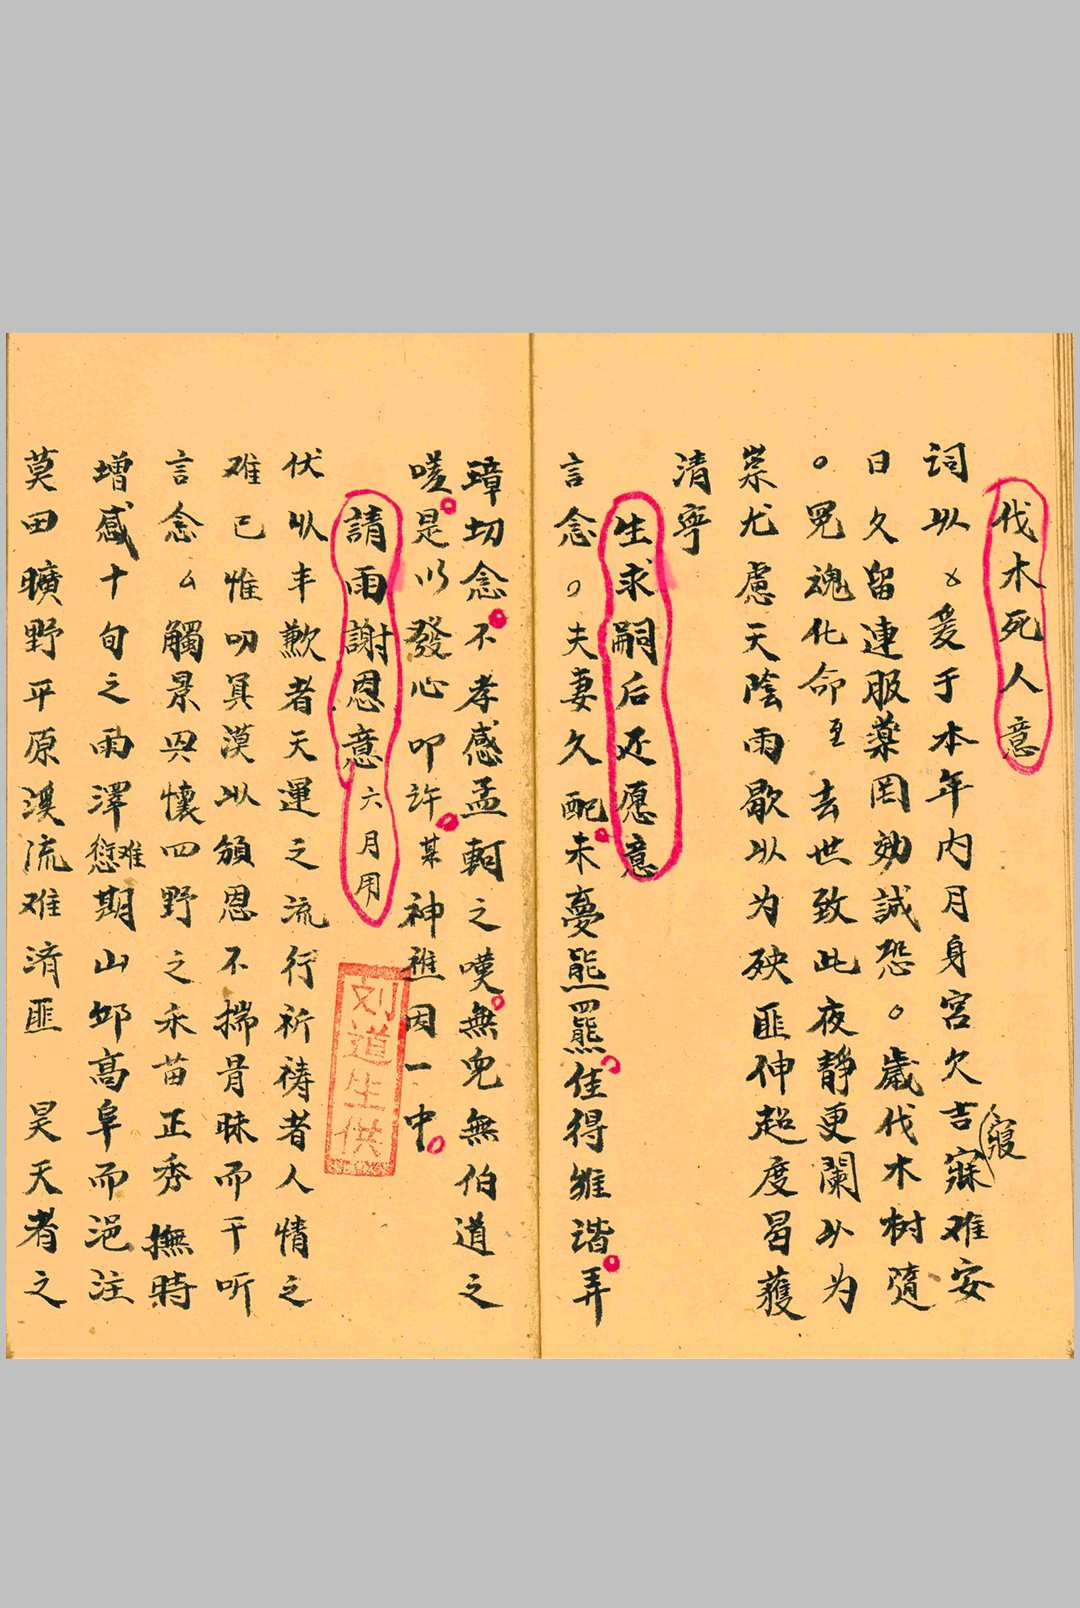 伐木死人意
詞以乂爰于本年内月身宮欠吉寐寢难安
日久留連服藥罔効誠恐○歲伐木树隨
○冤魂化命至去世致此夜靜更闌以为
祟尤慮天陰雨歇以为殃匪伸超度曷獲
清寧
生求嗣后还愿意
言念○夫妻久配未夢熊羆佳得雖諧弄
璋切念不孝感孟軻之嘆無兒無伯道之
嗟是以發心叩許某神進因一中
請雨謝恩意六月用
伏以丰歉者天運之流行祈祷者人情之
难已惟叨冥漠以頒恩不揣骨昧而干听
言念厶觸景興懷四野之禾苗正秀撫時
增感十旬之雨澤愆难期山邱高阜而浥注
莫田曠野平原溪流难済匪 昊天者之
刘道生供